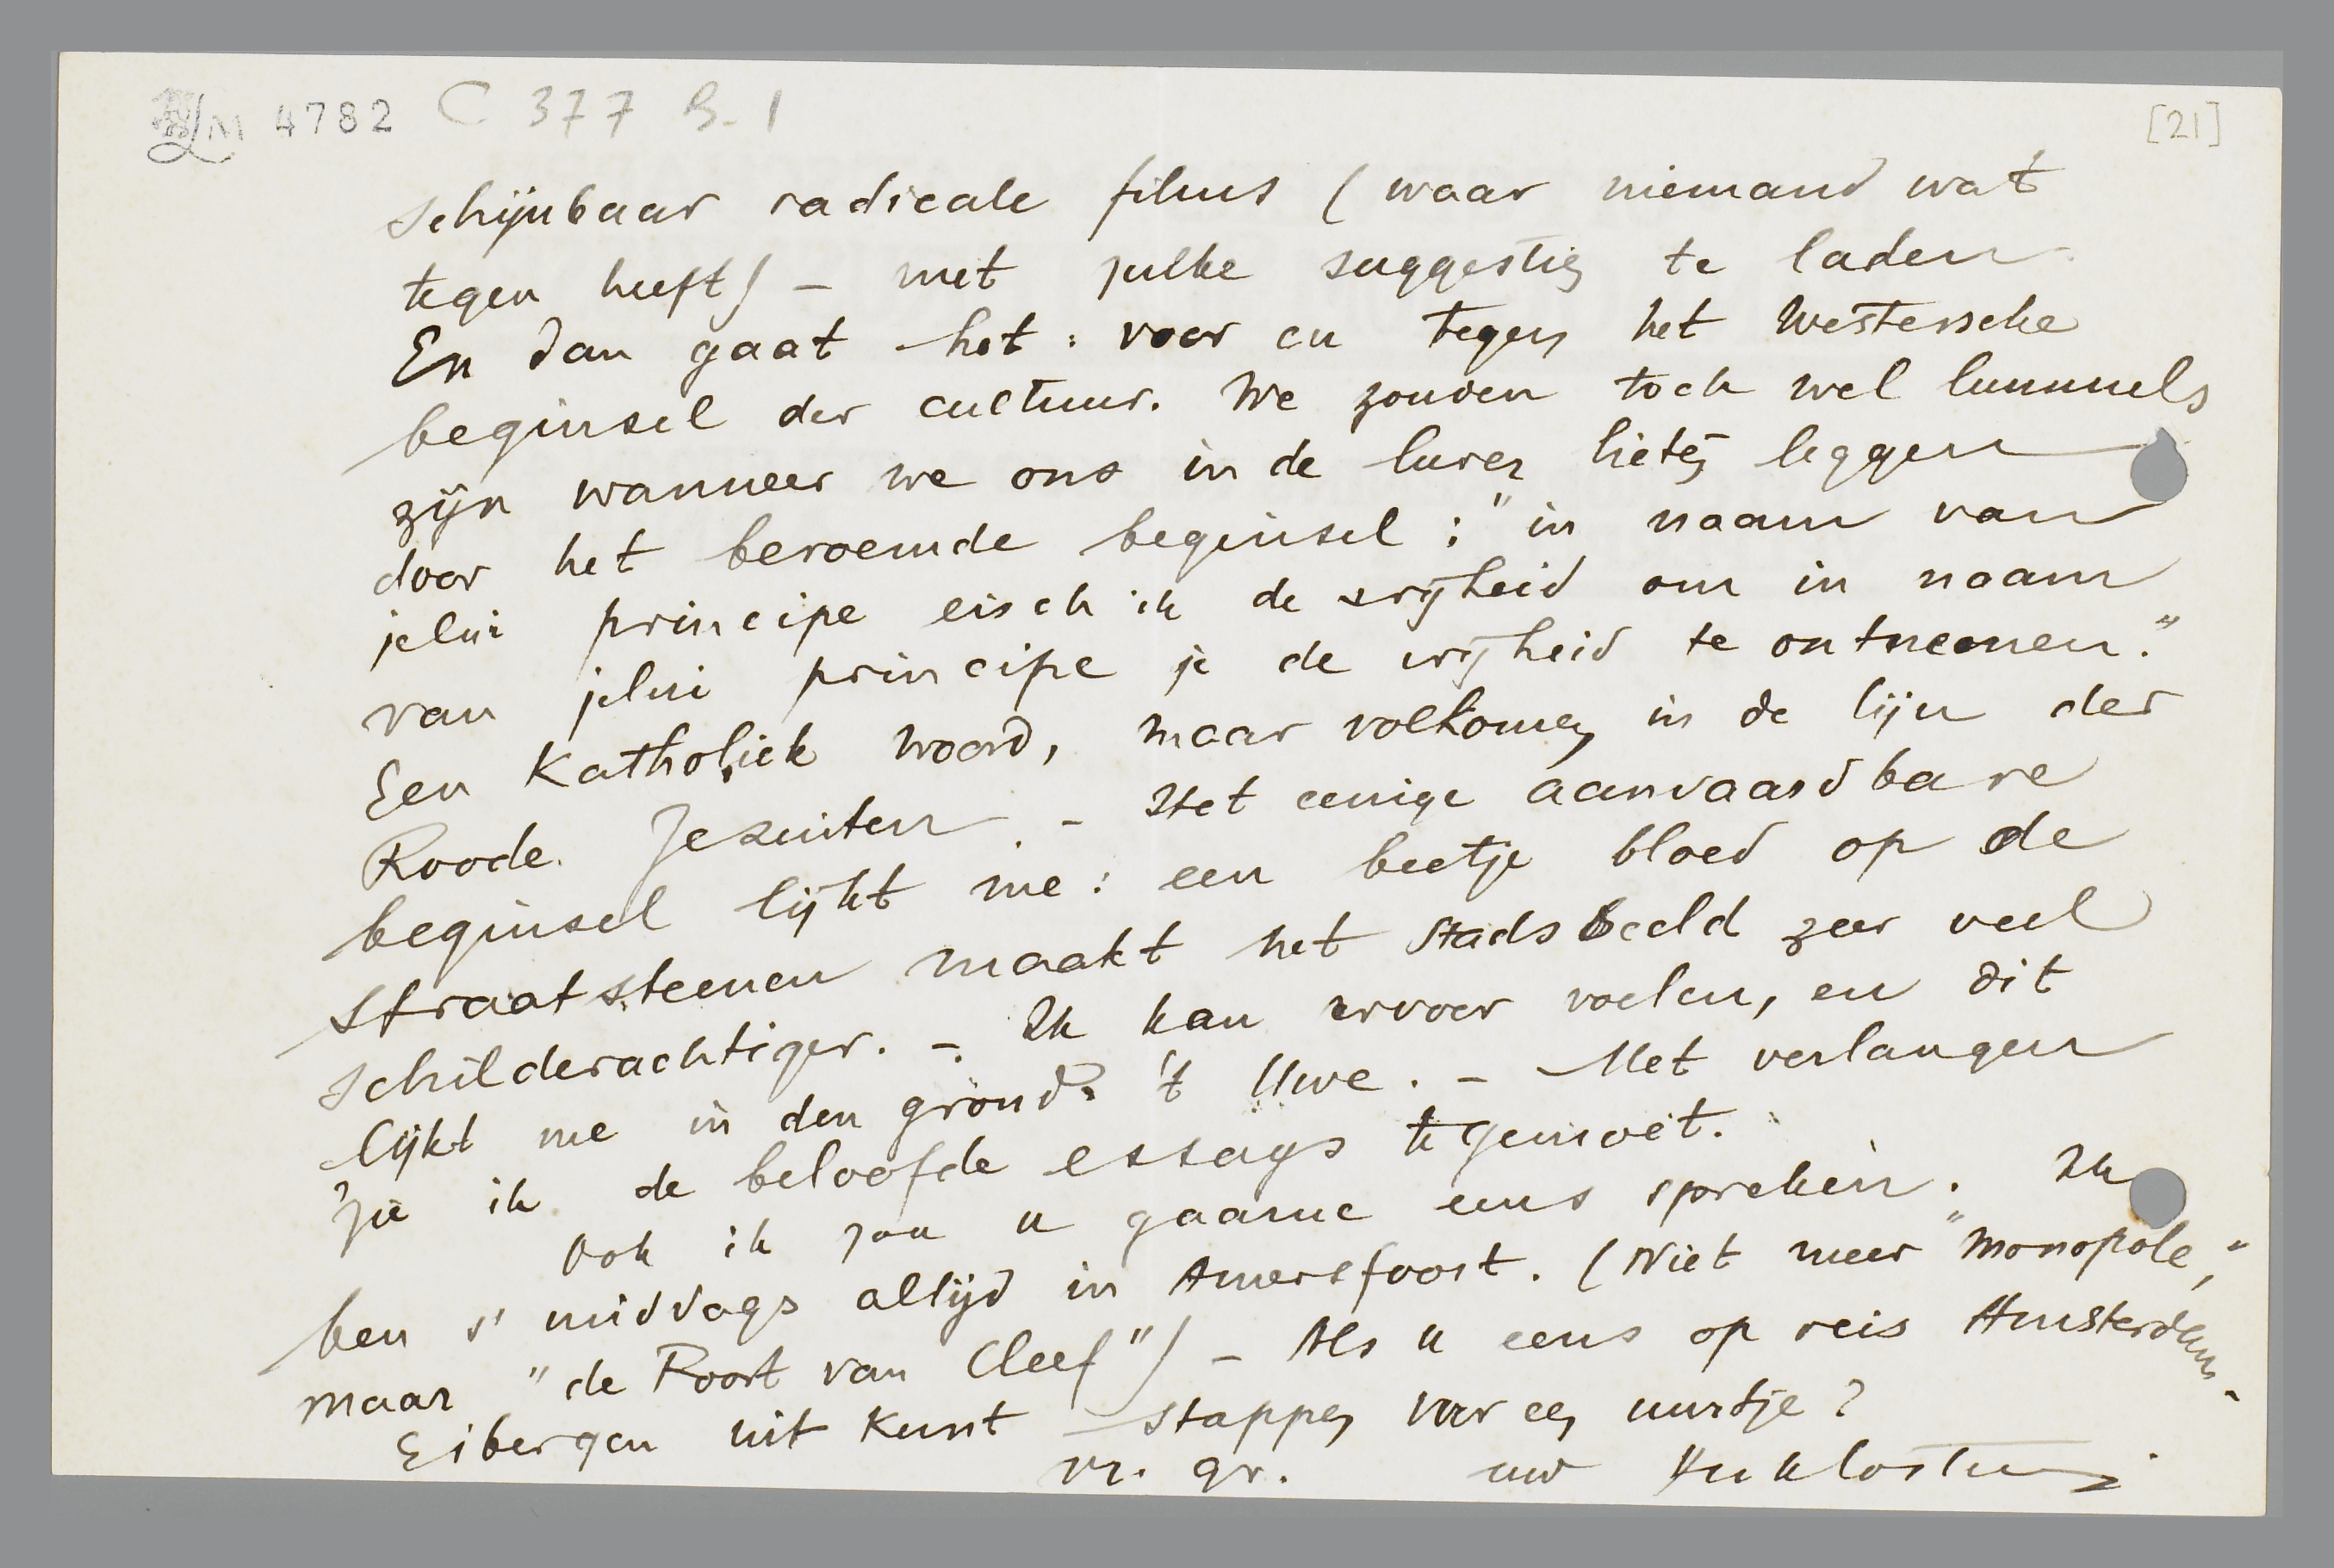 LM 4782 C 377 B. 1
[21]
schijnbaar radicale films (waar niemand wat
tegen heeft) – met zulke suggesties te laden.
En dan gaat het: voor en tegen het Westersche
beginsel der cultuur. We zouden toch wel lummels
zijn wanneer we ons in de luren lieten leggen
door het beroemde beginsel: "in naam van
jelui principe eisch ik de vrijheid om in naam
van jelui principe je de vrijheid te ontnemen."
Een Katholiek woord, maar volkomen in de lijn der
Roode Jezuiten. – Het eenige aanvaardbare
beginsel lijkt me: een beetje bloed op de
straatsteenen maakt het stadsbeeld zeer veel
schilderachtiger. – Ik kan ervoor voelen, en dit
lijkt me in den grond 't Uwe. – Met verlangen
zie ik de beloofde essays tegemoet.
Ook ik zou u gaarne eens spreken. Ik
ben s' middags altijd in Amersfoort. (Niet meer "Monopole",
maar "de Poort van Cleef") – Als u eens op reis Amsterdam-
Eibergen uit kunt stappen voor een uurtje?
vr. gr. uw